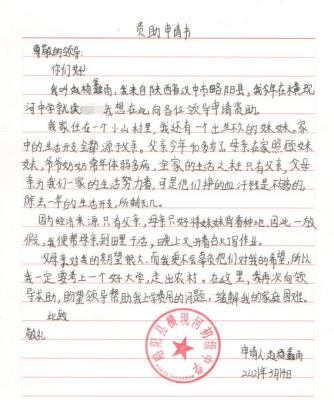 资助申请书
尊敬的领导:
你们好!
我叫赵杨鑫雨,我来自陕西省汉中市略阳县,我今年在横现
河中学就读 我想在此向各位领导申请资助。
我家住在一个小山村里,我还有一个出生不久的妹妹。家
中的生活开支全都源于父亲。父亲今年 多岁了母亲在家照顾妹
妹,爷爷奶奶常年体弱多病,全家的生活之柱只有父亲,父母
亲为我们一家的生活努力着,可是他们挣的血汗钱是不够的,
除去一年的生活开支,所剩无几。
因为经济来源只有父亲,母亲只好将妹妹背着种地,因此一放
假,我便帮母亲到田里干活,晚上又开着台灯写作业。
父母亲对我的期望很大,而我更不会辜负他们对我的希望,所以
我一定要考上一个好大学,走出农村。在这里,我再次向领
导求助,盼望领导帮助我上学费用的问题,缓解我的家庭困难。
此致
敬礼
申请人:赵杨鑫雨
2021年3月19日
略阳县横现河初级中学